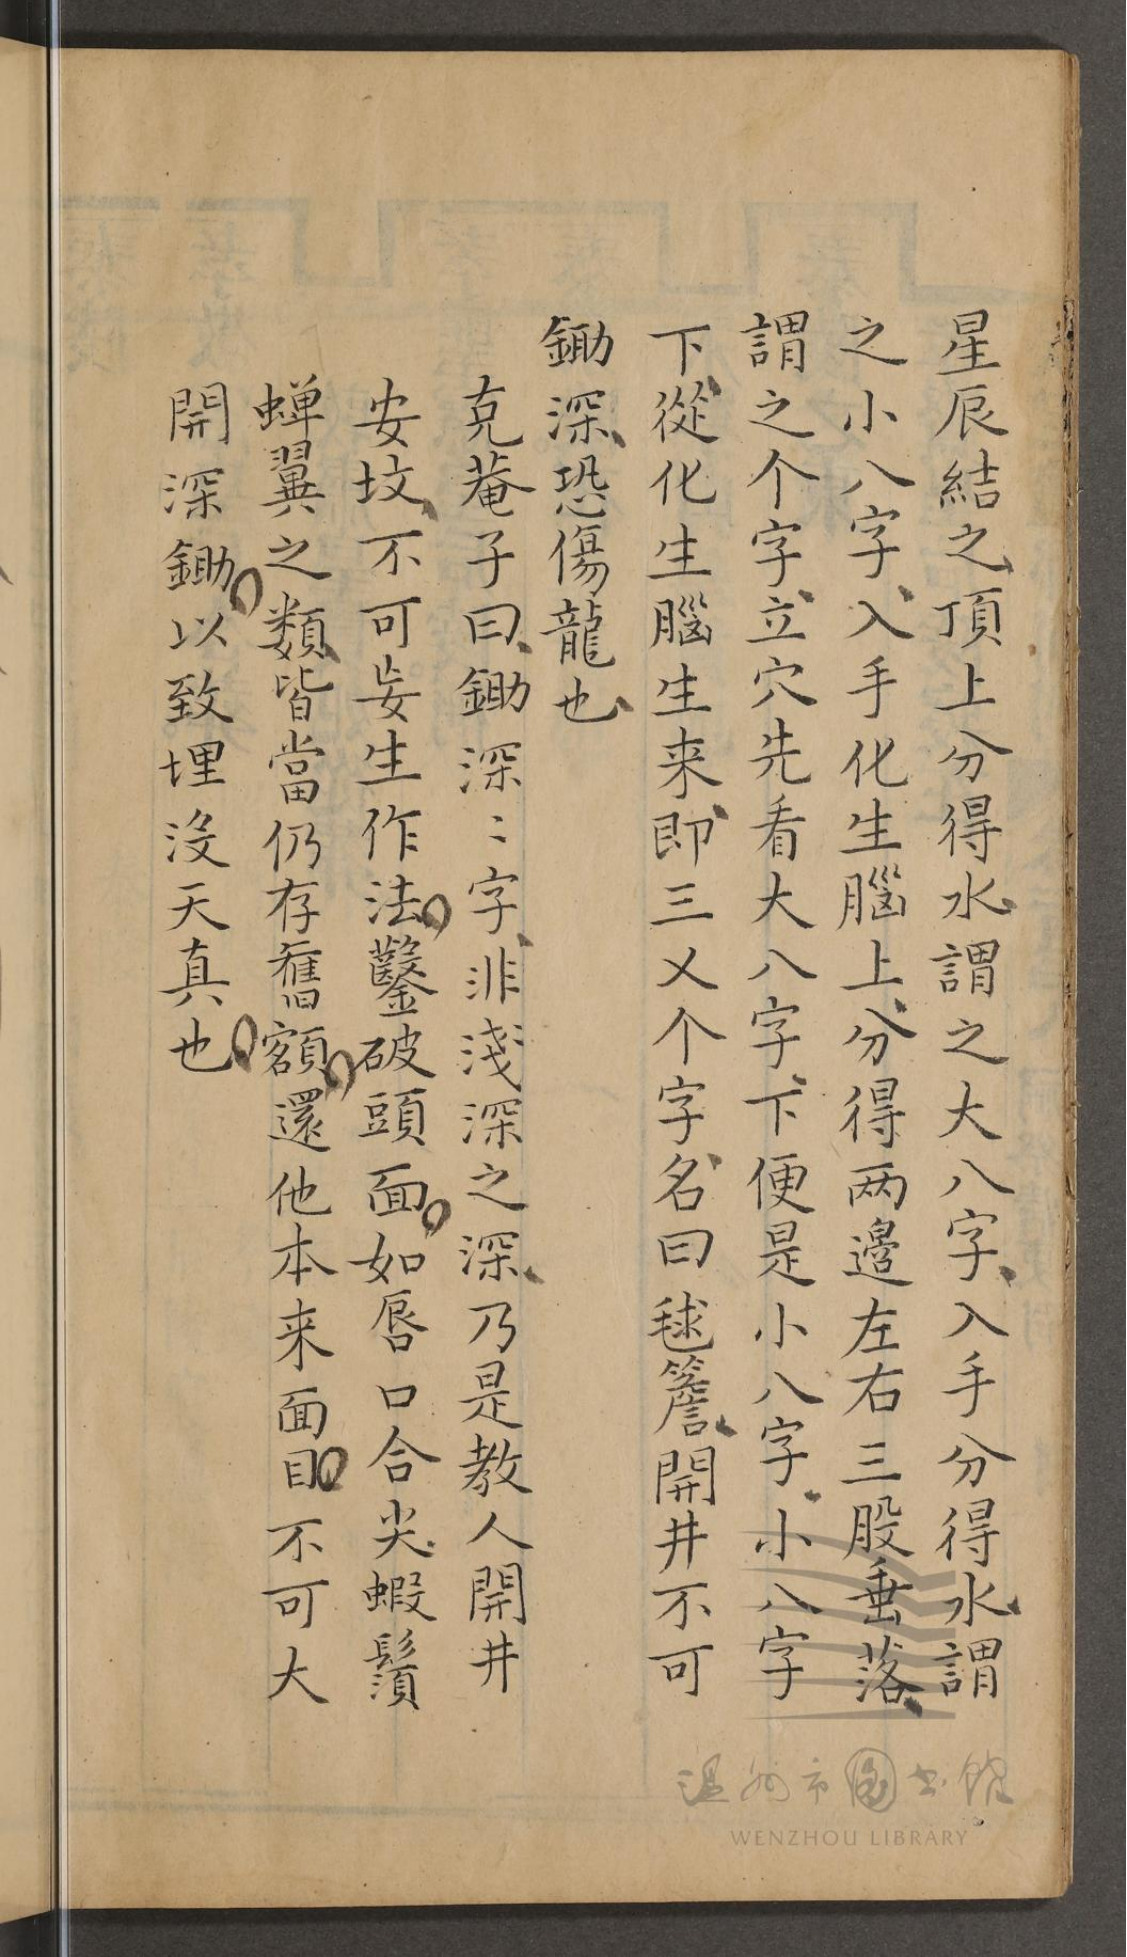 星辰結之頂上分得水謂之大八字入手分得水謂
之小八字入手化生腦上分得两邉左右三股垂落
謂之个字立穴先看大八字下便是小八字小八字
下從化生腦生来即三乂个字名曰毬簷開井不可
鋤深恐傷龍也
克菴子曰鋤深〻字非淺深之深乃是教人開井
安坟不可妄生作法鑿破頭面如唇口合尖蝦鬚
蟬翼之類皆當仍存舊額還他本来面目不可大
開深鋤以致埋沒天真也
温州市图书馆
WENZHOU LIBRARY